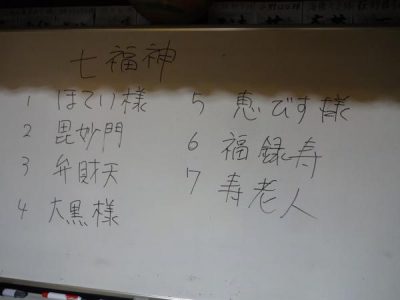 七福神
1 ほてい様
2 毘妙門
3 弁財天
4 大黒様
5 恵びす様
6 福録寿
7 寿老人